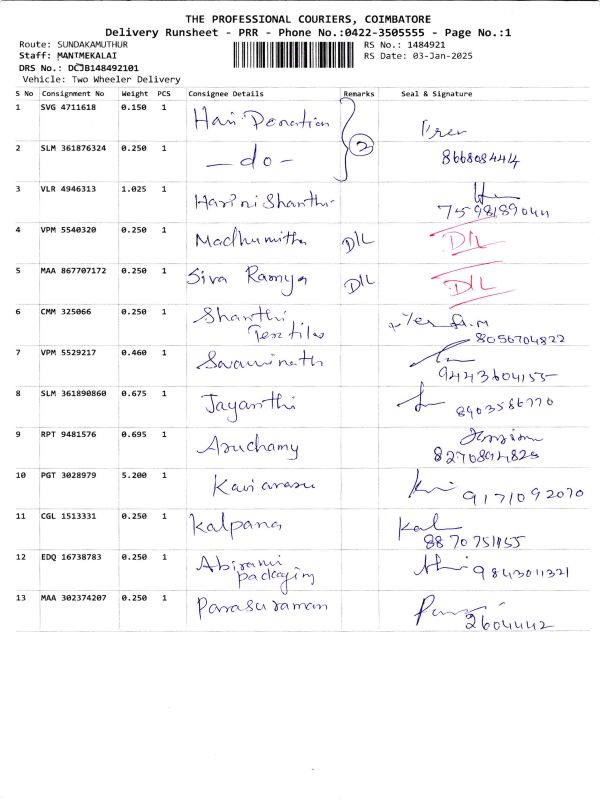 THE PROFESSIONAL COURIERS, COIMBATORE
Delivery Runsheet - PRR - Phone No.:0422-3505555 - Page No.:1
Route: SUNDAKAMUTHUR
RS No.: 1484921
Staff: MANIMEKALAI
RS Date: 03-Jan-2025
DRS No.: DCJB148492101
Vehicle: Two Wheeler Delivery
S No Consignment No Weight PCS Consignee Details Remarks Seal & Signature
1 SVG 4711618 0.150 1 Hari Donation 2
2 SLM 361876324 0.250 1 - do - 8668084414
3 VLR 4946313 1.025 1 Harini Shanthi 7598189044
4 VPM 5540320 0.250 1 Madhumitha D/L D/L
5 MAA 867707172 0.250 1 Siva Ramya D/L D/L
6 CMM 325066 0.250 1 Shanthi
Textiles 8056704822
7 VPM 5529217 0.460 1 Swaminath 9443604155
8 SLM 361890860 0.675 1 Jayanthi 8903586770
9 RPT 9481576 0.695 1 Aruchamy 8270894825
10 PGT 3028979 5.200 1 Kaviarasu 9171092070
11 CGL 1513331 0.250 1 Kalpana Kal
8870751155
12 EDQ 16738783 0.250 1 Abirami
packaging 9843011321
13 MAA 302374207 0.250 1 Parasuraman 2604442